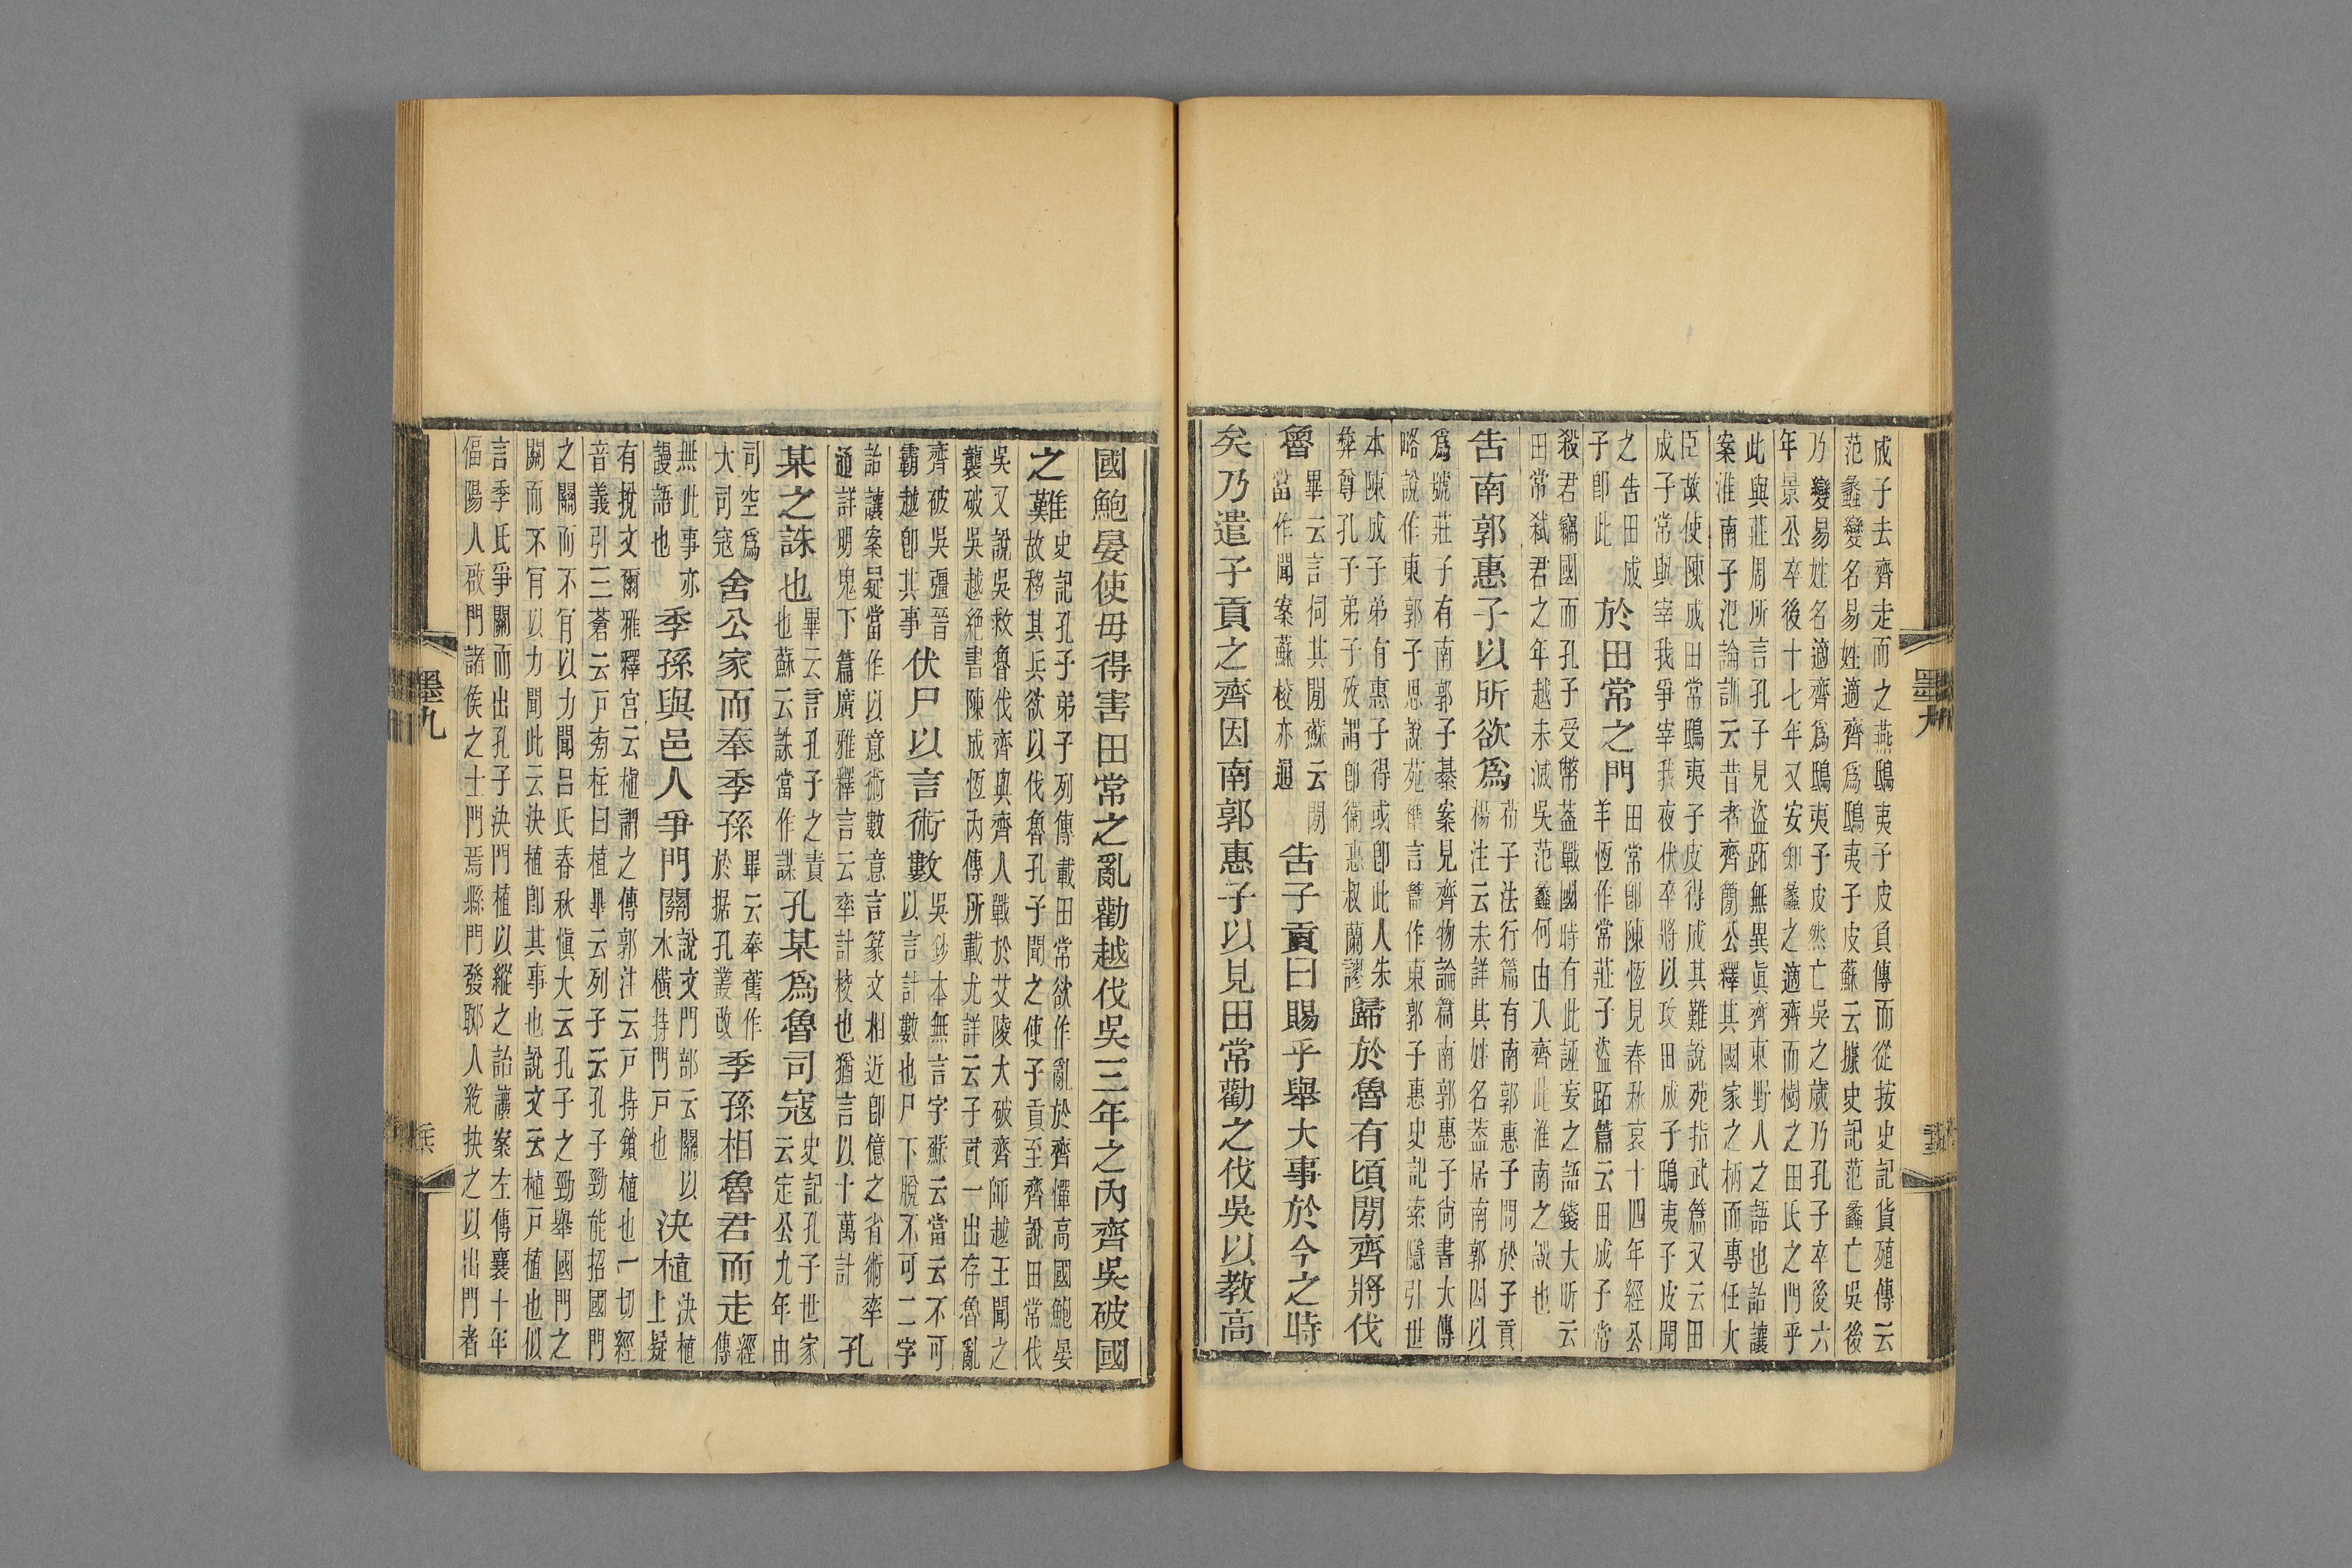 成子去齊走而之燕鴟夷子皮負傳而從按史記貨殖傳云
范蠡變名易姓適齊爲鴟夷子皮蘇云據史記范蠡亡吳後
乃變易姓名適齊爲鴟夷子皮然亡吳之歲乃孔子卒後六
年景公卒後十七年又安知蠡之適齊而樹之田氏之門乎
此與莊周所言孔子見盜跖無異眞齊東野人之語也詒讓
案淮南子氾論訓云昔者齊簡公釋其國家之柄而專任大
臣故使陳成田常鴟夷子皮得成其難說苑指武篇又云田
成子常與宰我爭宰我夜伏卒將以攻田成子鴟夷子皮聞
之告田成
子卽此
於田常之門
田常卽陳恆見春秋哀十四年經公
羊恆作常莊子盜跖篇云田成子常
殺君竊國而孔子受幣蓋戰國時有此誣妄之語錢大昕云
田常弒君之年越未滅吳范蠡何由入齊此淮南之誤也
告南郭惠子以所欲爲
荀子法行篇有南郭惠子問於子貢
楊注云未詳其姓名蓋居南郭因以
爲號莊子有南郭子綦案見齊物論篇南郭惠子尙書大傳
略說作東郭子思說苑雜言篇作東郭子惠史記索隱引世
本陳成子弟有惠子得或卽此人朱
彝尊孔子弟子攷謂卽衞惠叔蘭謬
歸於魯有頃閒齊將伐
魯
畢云言伺其閒蘇云閒
當作聞案蘇校亦通
告子貢曰賜乎舉大事於今之時
矣乃遣子貢之齊因南郭惠子以見田常勸之伐吳以教高
墨九
國鮑晏使毋得害田常之亂勸越伐吳三年之內齊吳破國
之難
史記孔子弟子列傳載田常欲作亂於齊憚高國鮑晏
故移其兵欲以伐魯孔子聞之使子貢至齊說田常伐
吳又說吳救魯伐齊與齊人戰於艾陵大破齊師越王聞之
襲破吳越絕書陳成恆內傳所載尤詳云子貢一出存魯亂
齊破吳彊晉
霸越卽其事
伏尸以言術數
吳鈔本無言字蘇云當云不可
以言計數也尸下脫不可二字
詒讓案疑當作以意術數意言篆文相近卽億之省術率
通詳明鬼下篇廣雅釋言云率計校也猶言以十萬計
孔
某之誅也
畢云言孔子之責
也蘇云誅當作謀
孔某爲魯司寇
史記孔子世家
云定公九年由
司空爲
大司寇
舍公家而奉季孫
畢云奉舊作
於据孔叢改
季孫相魯君而走
經
傳
無此事亦
謾語也
季孫與邑人爭門關
說文門部云關以
木橫持門戶也
決植
決植
上疑
有挩文爾雅釋宮云植謂之傳郭注云戶持鎖植也一切經
音義引三蒼云戶旁柱曰植畢云列子云孔子勁能招國門
之關而不肎以力聞呂氏春秋愼大云孔子之勁舉國門之
關而不肎以力聞此云決植卽其事也說文云植戶植也似
言季氏爭關而出孔子決門植以縱之詒讓案左傳襄十年
偪陽人啟門諸侯之士門焉縣門發郰人紇抉之以出門者
墨九